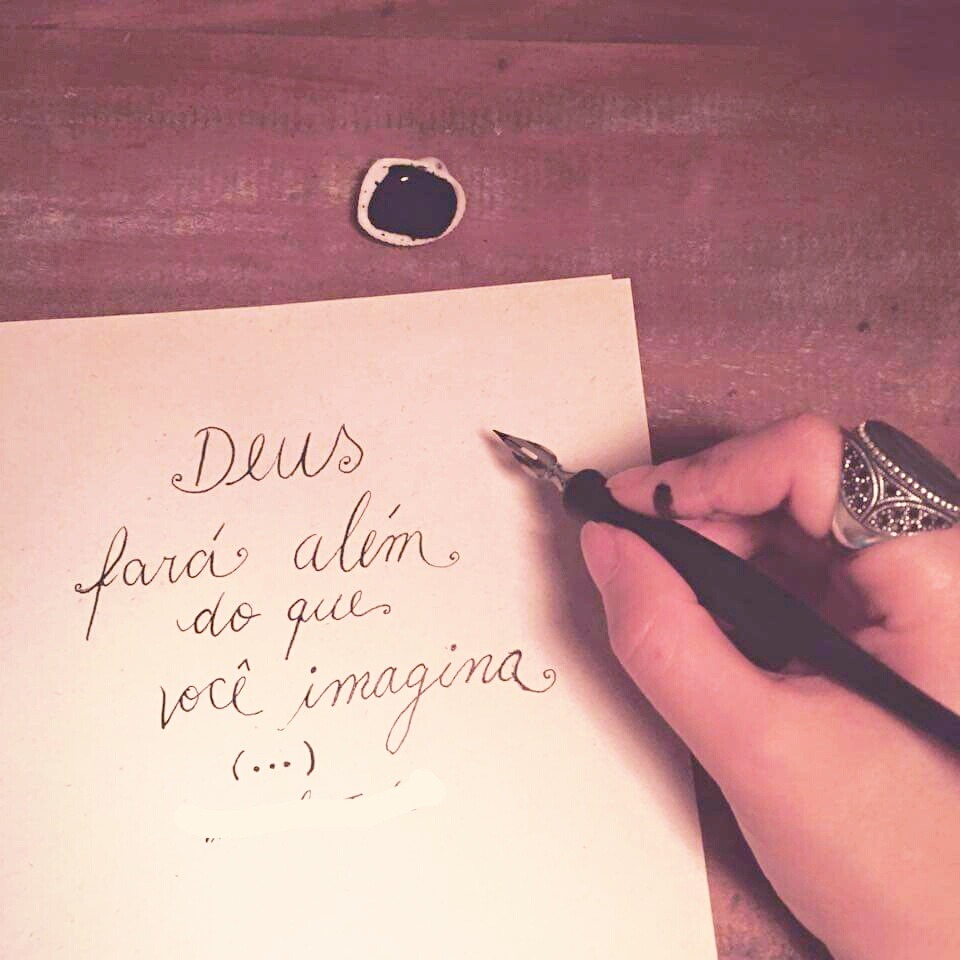 Deus
fará além
do que
você imagina
(...)